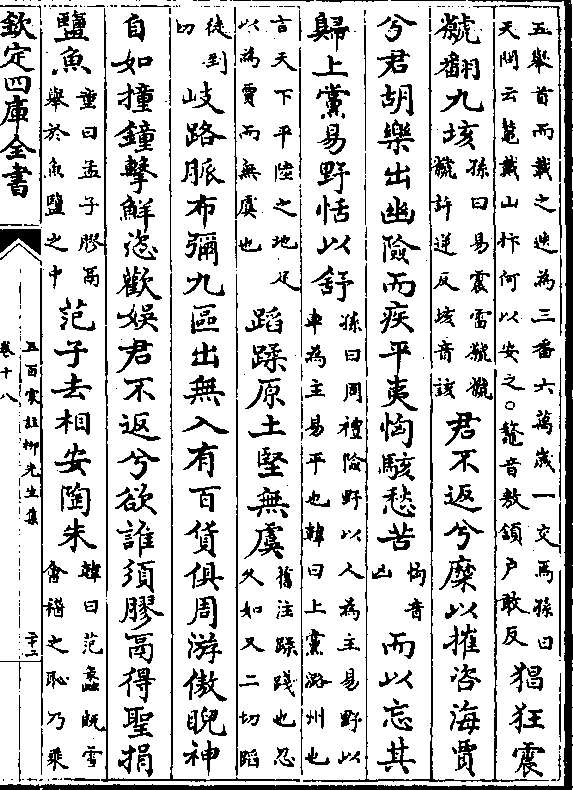 五舉首而戴之迭為三番六萬歲一交焉孫曰
天問云鼇戴山抃何以安之○鼇音敖頷戶敢反
猖狂震
虩翻九垓
孫曰易震雷虩虩
虩許逆反垓音該
君不返兮糜以摧咨海賈
兮君胡樂出幽險而疾平夷恟駭愁苦
恟音
凶
而以忘其
歸上黨易野恬以舒
孫曰周禮險野以人為主易野以
車為主易平也韓曰上黨潞州也
言天下平陸之地足
以為賈而無虞也
蹈蹂原土堅無虞
舊注蹂踐也忍
久如又二切蹈
徒到
切
岐路脈布彌九區出無入有百貨俱周游傲睨神
自如撞鐘擊鮮恣歡娛君不返兮欲誰須膠鬲得聖捐
鹽魚
童曰孟子膠鬲
舉於魚鹽之中
范子去相安陶朱
韓曰范蠡既雪
會稽之恥乃乘
欽定四庫全書
五百家註柳先生集
卷十八
二十二